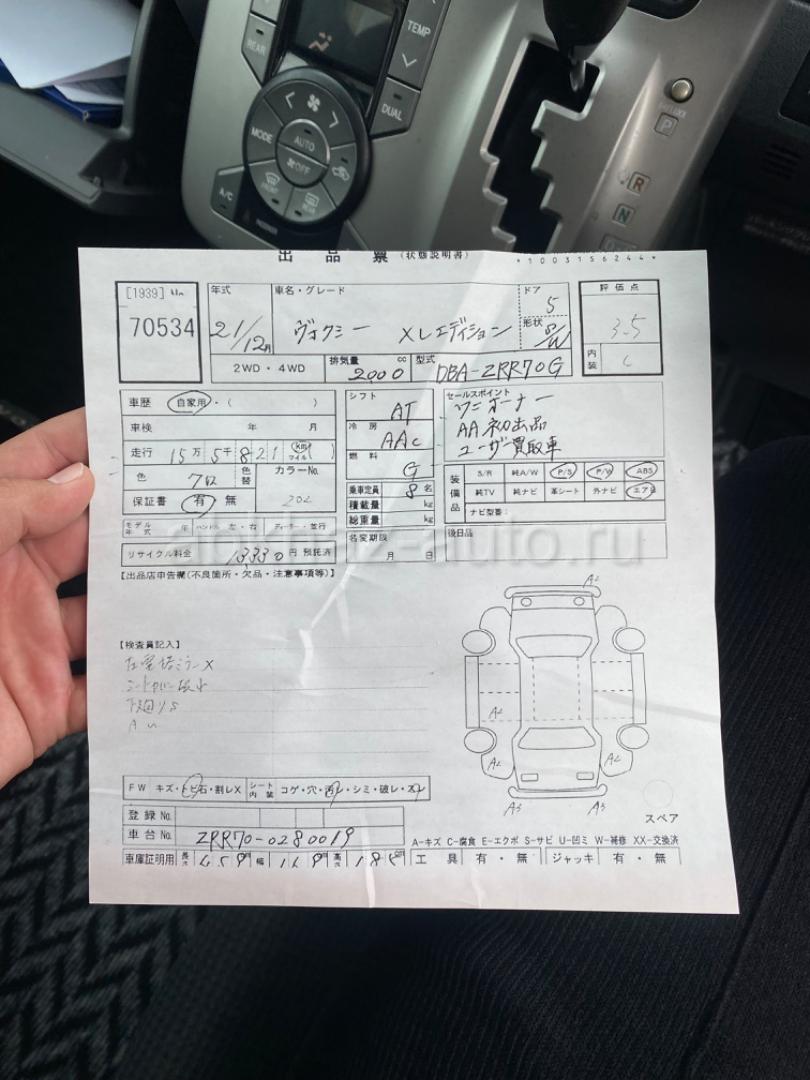 REAR
TEMP
DUAL
MODE
AUTO
OFF
FRONT
REAR
A/C
P
R
N
出品票 (状態説明書)
*1003156244*
[1939]
70534
年式
21/12月
車名・グレード
ヴォクシー XLエディション
ドア
5
形状
S/W
評価点
3.5
内装
C
2WD・4WD
排気量
2000 cc
型式
DBA-ZRR70G
車歴 自家用・( )
車検 年 月
走行 15万5千821 km マイル ( )
色
色替
カラーNo.
202
保証書 有・無
モデル年式 年 ハンドル 左・右 ディーラー・並行
リサイクル料金 13330円 預託済
シフト
AT
冷房
AAC
燃料
G
乗車定員 8名
積載量 kg
総重量 kg
名変期限
月 日
セールスポイント
ワンオーナー
AA初出品
ユーザー買取車
装備品
S/R 純A/W P/S P/W ABS
純TV 純ナビ 革シート 外ナビ エアB
ナビ型番:
後日品
【出品店申告欄(不良箇所・欠品・注意事項等)】
【検査員記入】
下廻りS
A2
A2
A2
A2
A3
A3
スペア
FW キズ・トビ石・割レX シート内装 コゲ・穴・汚レ・シミ・破レ・スレ
登録No.
車台No. ZRR70-0280019
車庫証明用 長さ 459 幅 169 高さ 185 cm
A-キズ C-腐食 E-エクボ S-サビ U-凹ミ W-補修 XX-交換済
工具 有・無 ジャッキ 有・無
abkhaz-auto.ru